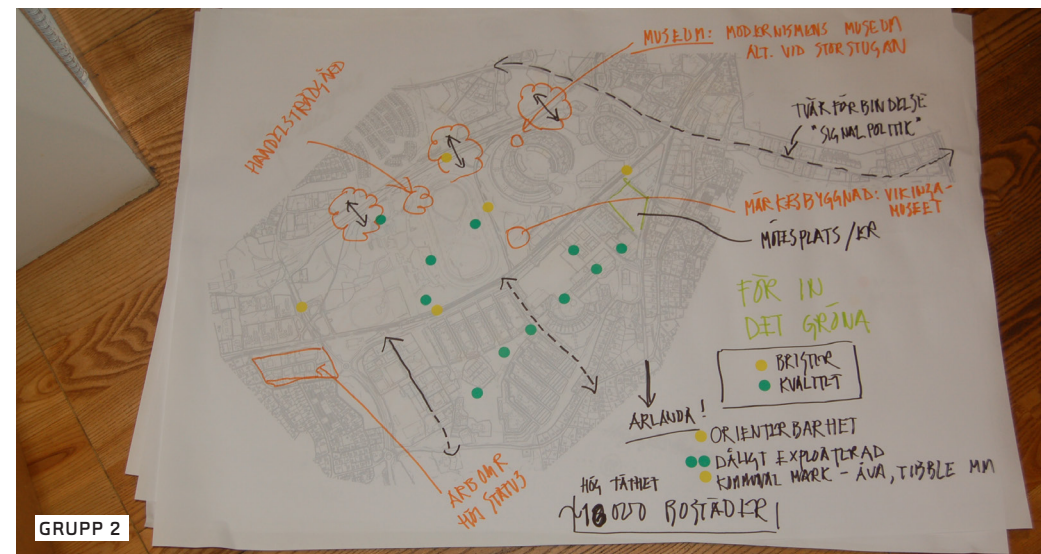 MUSEUM: MODERNISMENS MUSEUM
ALT. VID STORSTUGAN
HANDELSTRÄDGÅRD
TVÄRFÖRBINDELSE
"SIGNALPOLITIK"
MÄRKESBYGGNAD: VIKINGA-
MUSEET
MÖTESPLATS/
FÖR IN
DET GRÖNA
BRISTER
KVALITET
ARLANDA!
ORIENTERBARHET
DÅLIGT EXPLOATERAD
KOMMUNAL MARK - ÅVA, TIBBLE MM
ARBOMR
HÖG STATUS
HÖG TÄTHET
BOSTÄDER
GRUPP 2